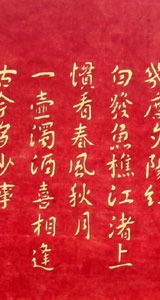 幾度夕陽紅
白發魚樵江渚上
慣看春風秋月
一壺濁酒喜相逢
古今多少事